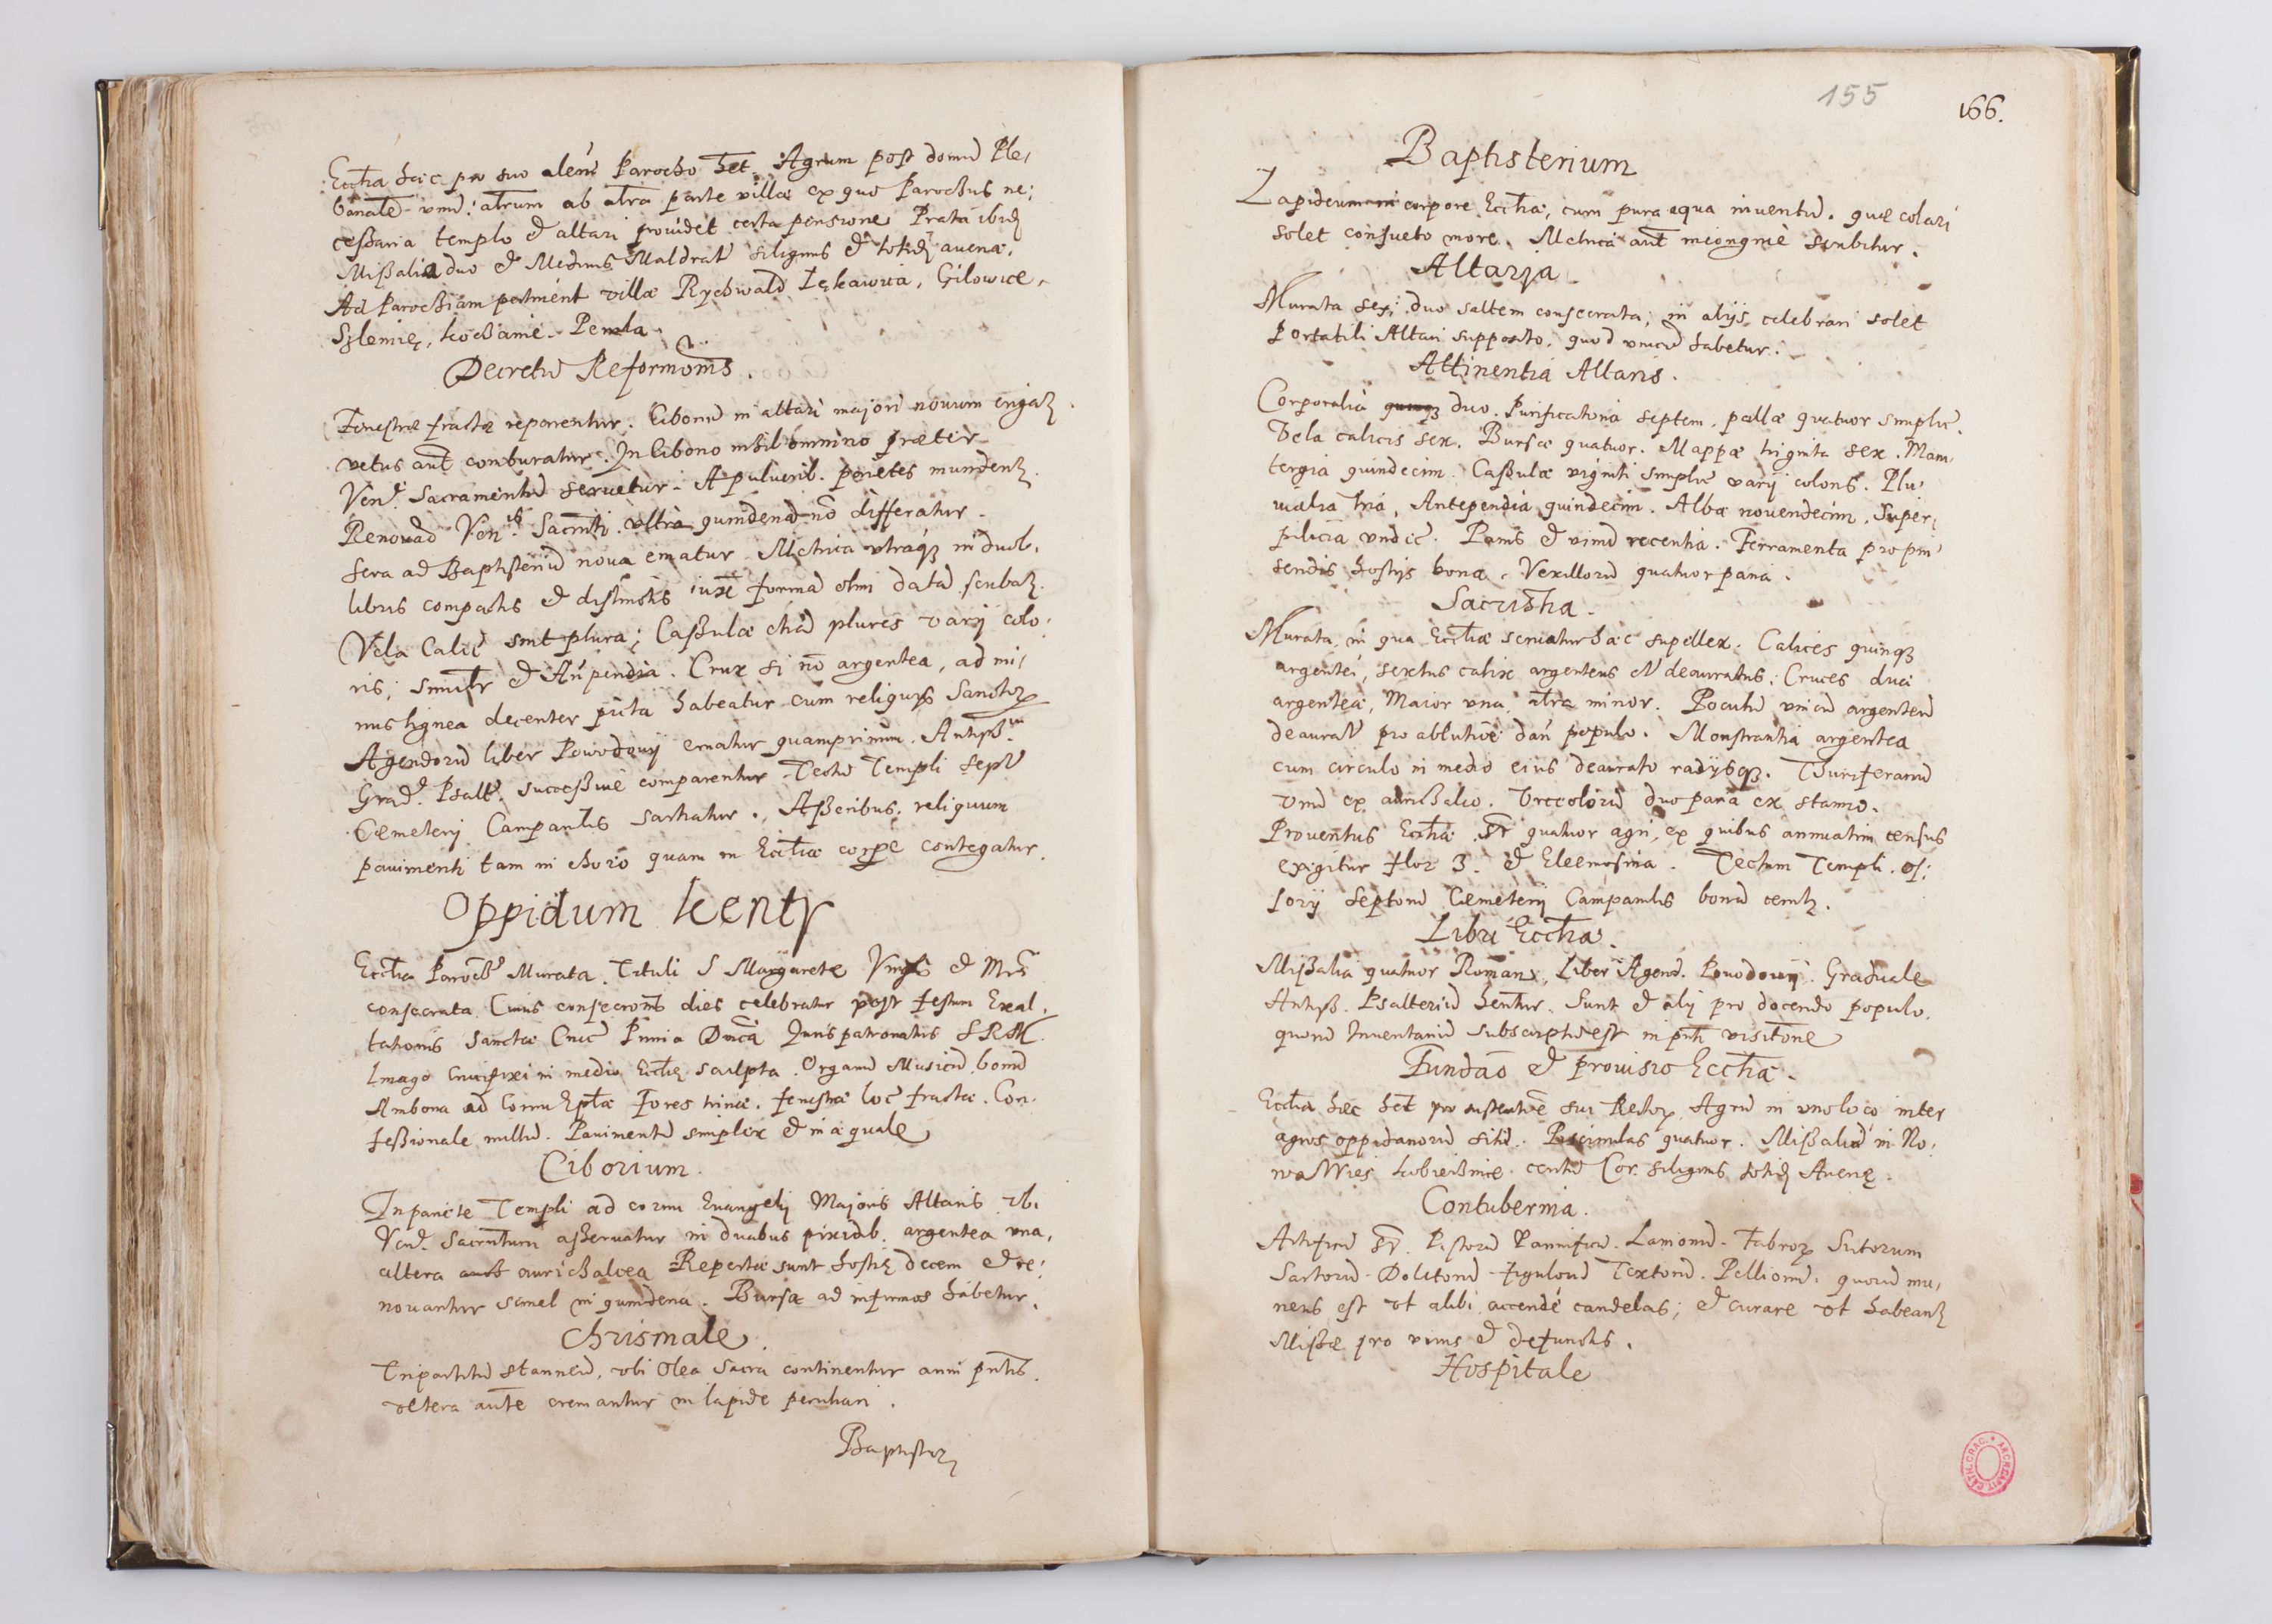 Ecctia haec pro suo alem̄ Parocho het. Agrum post domū Ple,
banalē vnū: alrum ab alra parte villae ex quo Parochus ne:
cessaria templo et altari prouidet certa pensione Prata ibid
Missalia duo et Medius Maldrat siliginis et totid auenae.
Ad Parochiam pertinent villae Rychwald Lękawica, Gilowice,
Szlemię, Kochanie. Pewla.
Decretū Reformōnis.
Fenestrae fractae reparentur. Ciboriū in altari majori nouum erigat.
vetus aut comburatur. In Ciborio nihil omnino praeter
Ven. Sacramentū seruetur. A puluerib. parietes mundent.
Renouaō Ven. Sacrnti vltra quindenā nō differatur.
Sera ad Baptisteriū noua ematur. Metrica vtraq in duob.
libris compactis et distinctis iuxē formā olim datā scribat.
Vela Calic sint plura; Cassulae etiā plures varij colo:
ris; simiłr et Antipendia. Crux si nō argentea, ad mi,
nus lignea decenter picta habeatur cum reliquijs Sanctor
Agendorū liber Powodouij ematur quamprimum. Antiph.
Grad. Psalt. successiue comparentur. Tectū Templi Sept
Caemeterij Campanilis sartiatur. Asseribus reliquum
pauimenti tam in choro quam in Ecctiae corpe contegatur.
Oppidum Kenty
Ecctia Paroch Murata. Tituli S Margarete Virgis et Mris
consecrata. Cuius consecronis dies celebratur post festum Exal,
tationis Sanctae Crucis Prima Dnica Juris patronatus S R M.
Imago Crucifixi in medio Ecctię sculpta. Organū Musicū bonū
Ambona ad Cornu Eptae Fores trinae. fenestrae loc fractae. Con,
fessionale nullū. Pauimentū simplex et inaequale
Ciborium.
In pariete Templi ad cornu Euangelij Majoris Altaris vbi
Ven. Sacrntum asseruatur in duabus pixidib. argentea vna,
altera aurichalcea Repertae sunt hostię decem et re:
nouantur semel in quindena. Bursa ad infirmos habetur.
Chrismale.
Tripartitū stanneū, vbi Olea Sacra continentur anni pntis.
vetera aute cremantur in lapide perituari.
Baptister
155
166.
Baptisterium
Lapideum in corpore Ecctiae, cum pura aqua inuentū. quae colari
solet consueto more. Metrica aut incongrue scribitur.
Altaria
Murata sex; duo saltem consecrata; in alijs celebrari solet
Portatili Altari supposito, quod vnicū habetur.
Attinentia Altaris.
Corporalia duo. Purificatoria septem. pallae quatuor simplic.
Vela calicis sex. Bursae quatuor. Mappae triginta sex. Man,
tergia quindecim. Casulae viginti simplic varij coloris. Plu,
uialia tria. Antependia quindecim. Albae nouendecim. Super,
pilicia vndec. Panis et vinū recentia. Ferramenta pro pin,
sendis hostijs bona. Vexillorū quatuor paria.
Sacristia.
Murata, in qua Ecctiae seruatur haec supellex. Calices quinq
argentei, sextus calix argenteus et deauratus. Cruces duae
argenteae, Maior vna, alra minor. Poculū vnicū argenteū
deaurat pro ablutiōe dari populo. Monstrantia argentea
cum circulo in medio eius deaurato radijsq. Thuriferariū
vnū ex aurichalco. Vrceolorū duo paria ex stanno.
Prouentus Ecctiae st quatuor agri, ex quibus annuatim census
exigitur flor 3. et Eleemosina. Tectum Templi. os,
sorij Septorū Caemeterij Campanilis bonū cernit.
Libri Ecctiae.
Missalia quatuor Roman, Liber Agend. Powodouij. Graduale
Antiph. Psalteriū hentur. Sunt et alij pro docendo populo,
quorū Inuentariū subscriptū est in pnti visitone
Fundaō et prouisio Ecctiae.
Ecctia haec het pro sustentōe sui Rector Agrū in vno loco inter
agros oppidanorū sitū. Piscinulas quatuor. Missaliū in No,
wa Wies Kobiernice. centū Cor. siliginis totid Auenę.
Contubernia.
Artificū st. Pistorū Pannificū. Lanionū. Fabror Sutorum
Sartorū. Doleatorū figulorū Textorū. Pellionū, quorū mu,
neris est vt alibi accende candelas; et curare vt habeant
Missae pro viuis et defunctis.
Hospitale